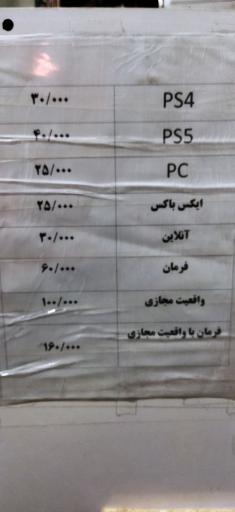 PS4 ۳۰/۰۰۰
PS5 ۴۰/۰۰۰
PC ۲۵/۰۰۰
ایکس باکس ۲۵/۰۰۰
آنلاین ۳۰/۰۰۰
فرمان ۶۰/۰۰۰
واقعیت مجازی ۱۰۰/۰۰۰
فرمان با واقعیت مجازی ۱۶۰/۰۰۰